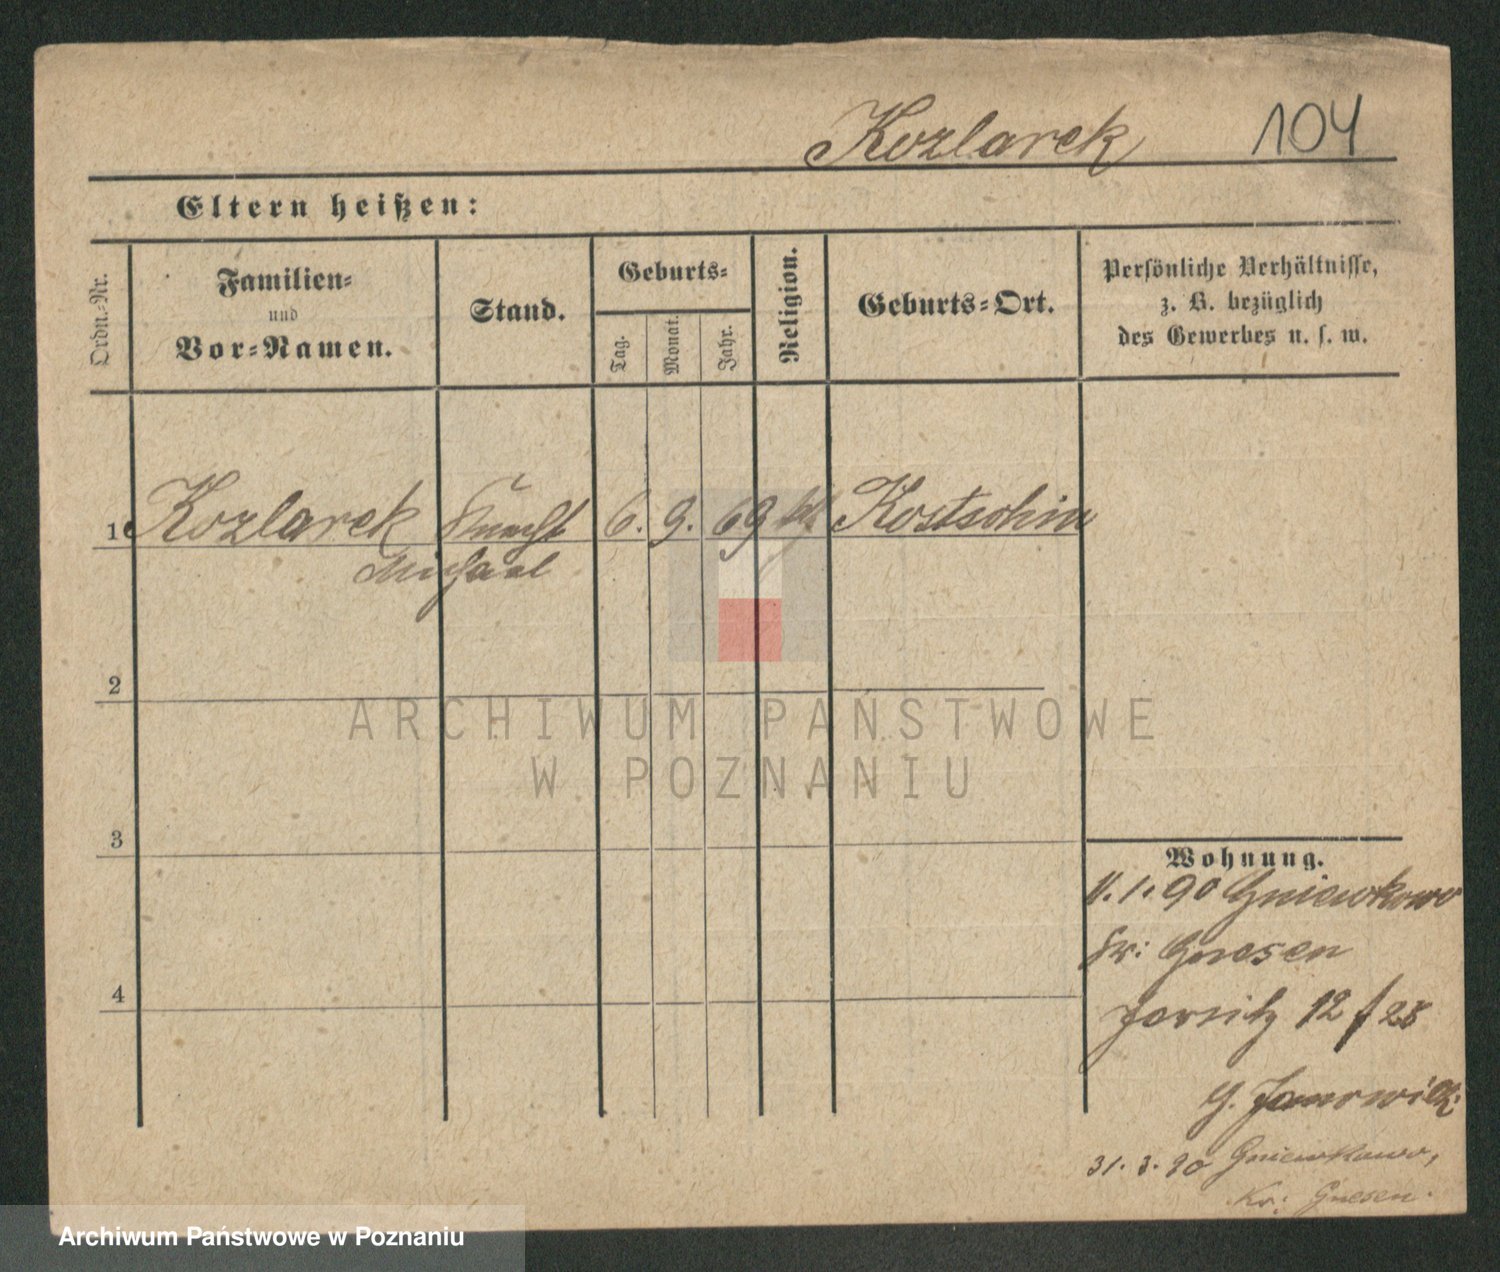 Kozlarek 104
Eltern heißen:
Ordn.-Nr.
Familien-
und
Vor-Namen.
Stand.
Geburts-
Tag.
Monat.
Jahr.
Religion.
Geburts-Ort.
Persönliche Verhältnisse,
z. B. bezüglich
des Gewerbes u. s. w.
1 Kozlarek Knecht 6. 9. 69 kth Kostschin
Michael
2
ARCHIWUM PAŃSTWOWE
W POZNANIU
3
Wohnung.
11.1.90 Gniewkowo
Kr: Gnesen
Jersitz 12 f 28
G. Janowicz
4
31.3.90 Gniewkowo,
Kr: Gnesen.
Archiwum Państwowe w Poznaniu